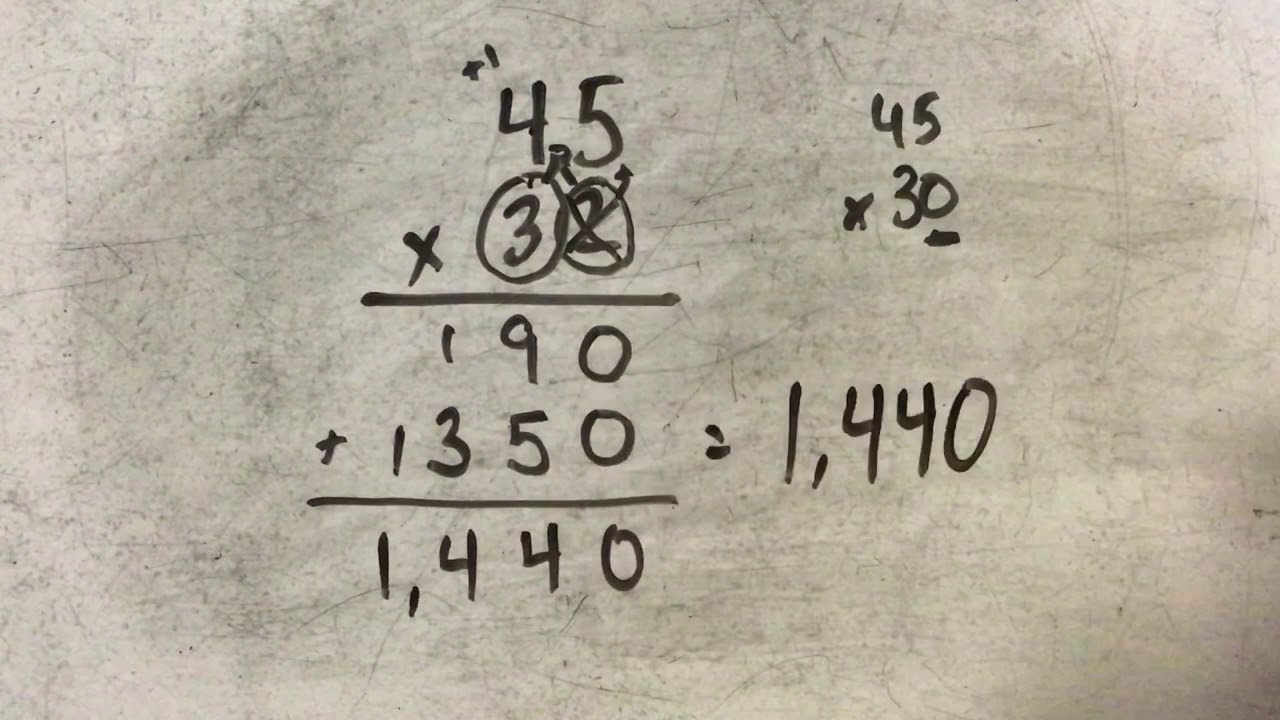 +1
45
x 32
190
+ 1350 = 1,440
1,440
45
x 30